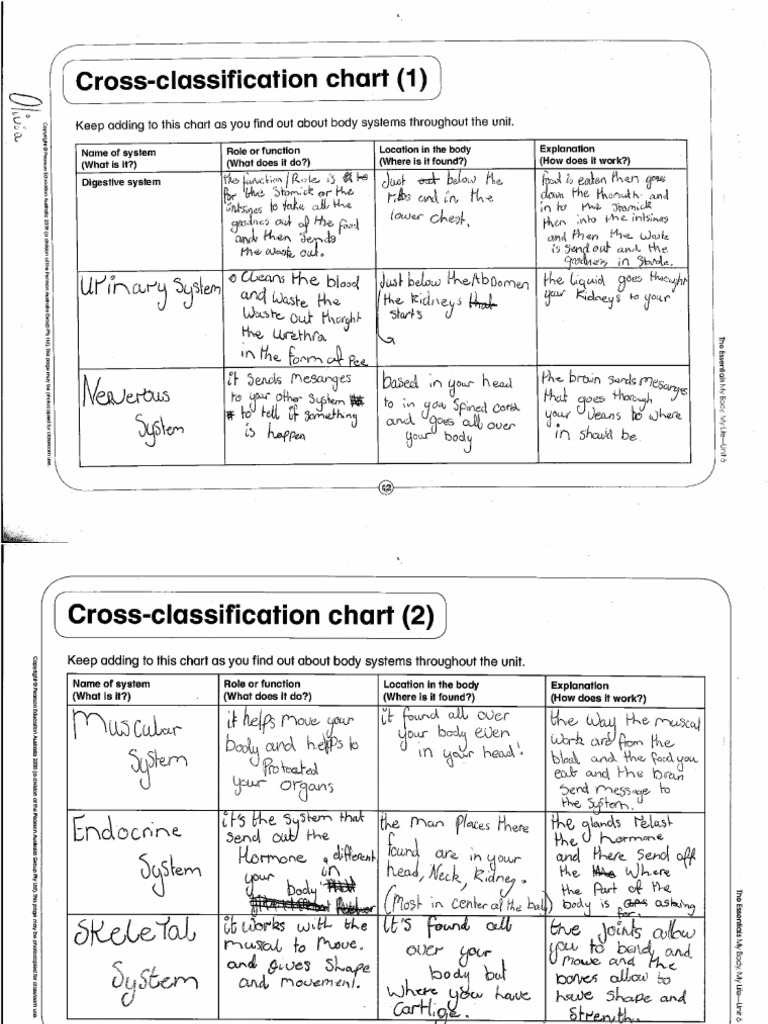 Cross-classification chart (1)
Olivia
Keep adding to this chart as you find out about body systems throughout the unit.
Name of system
(What is it?)
Role or function
(What does it do?)
Location in the body
(Where is it found?)
Explanation
(How does it work?)
Digestive system
the function/Role is
for the Stomick or the
intsines to take all the
goodnes out of the food
and then sends
the waste out.
Just below the
ribs and in the
lower chest.
food is eaten then goes
down the thorouth and
in to the stomick
then into the intsines
and then the waste
is send out and the
goodness in
Urinary System
Cleans the blood
and waste the
Waste out thought
the Urethra
in the form of Pee
Just below the Abdomen
the Kidneys that
starts
the liquid goes thought
your Kidneys to your
Nerverous
System
it sends mesanges
to your other system
to tell if something
is happen
based in your head
to in you spined cord
and goes all over
your body
the brain sends mesanges
that goes thorough
your veans to where
in should be.
42
The Essentials My Body, My Life—Unit 6
Copyright © Pearson Education Australia 2008 (a division of the Pearson Australia Group Pty Ltd). This page may be photocopied for classroom use.
Cross-classification chart (2)
Keep adding to this chart as you find out about body systems throughout the unit.
Name of system
(What is it?)
Role or function
(What does it do?)
Location in the body
(Where is it found?)
Explanation
(How does it work?)
Muscular
System
it helps move your
body and helps to
Protected
your organs
it found all over
your body even
in your head!
the way the muscal
work are from the
blood and the food you
eat and the bran
send message to
the system.
Endocrine
System
it's the system that
send out the
Hormone different
your in
body
the man places there
found are in your
head, Neck, Kidney.
(Most in center of the body)
the glands relast
the hormone
and there send off
the Where
the Part of the
body is asking
for.
Skeletal
System
it works with the
muscal to move.
and gives shape
and movement.
It's found all
over your
body but
Where you have
Cartlige.
the joints allow
you to bend and
move and the
bones allow to
have shape and
Strength.
The Essentials My Body, My Life—Unit 6
Copyright © Pearson Education Australia 2008 (a division of the Pearson Australia Group Pty Ltd). This page may be photocopied for classroom use.